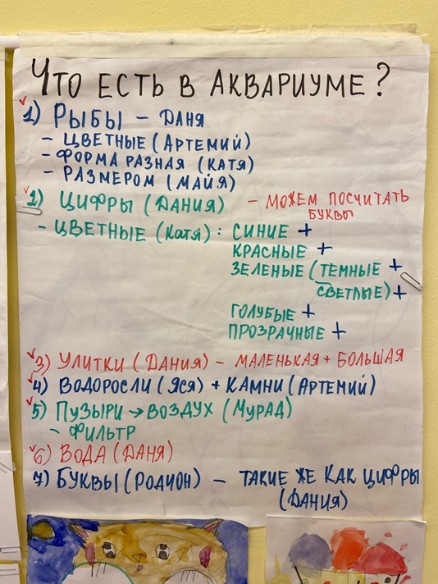 Что есть в аквариуме?
1) Рыбы – Даня
- цветные (Артемий)
- форма разная (Катя)
- размером (Майя)
2) Цифры (Дания) - можем посчитать
буквы
- цветные (Катя): синие +
красные +
зеленые (темные +
светлые) +
голубые +
прозрачные +
3) Улитки (Дания) - маленькая + большая
4) Водоросли (Яся) + камни (Артемий)
5) Пузыри → воздух (Мурад)
- фильтр
6) Вода (Даня)
7) Буквы (Родион) - такие же как цифры
(Дания)